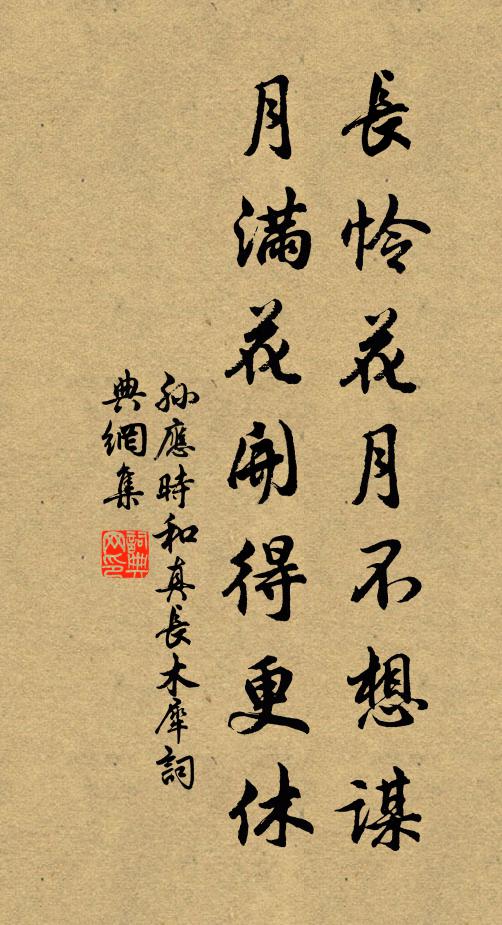 長怜花月不想謀
月滿花開得更休
孫應時和真長木犀詞
典網集
詞典
网印